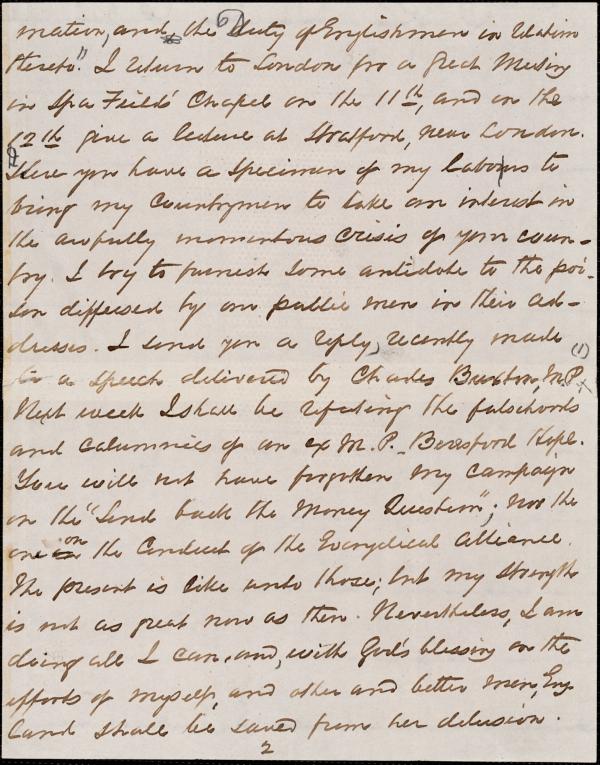 mation, and the Duty of Englishmen in relation
thereto". I return to London for a Great Meeting
in Spa Fields' Chapel on the 11th, and on the
12th give a lecture at Stratford, near London.
Here you have a specimen of my labors to
bring my Countrymen to take an interest in
the awfully momentous crisis of your coun-
try. I try to furnish some antidote to the poi-
son diffused by our public men in their ad-
dresses. I send you a reply, recently made
(1)
to a speech delivered by Charles Buxton M.P. x
Next week I shall be refuting the falsehoods
and calumnies of an ex M.P. - Beresford Hope.
You will not have forgotten my campaign
on the "Send back the Money Question"; nor the
one on the Conduct of the Evangelical Alliance.
The present is like unto those; but my strength
is not as great now as then. Nevertheless, I am
doing all I can, and, with God's blessing on the
efforts of myself, and other and better men, Eng
land shall be saved from her delusion.
2